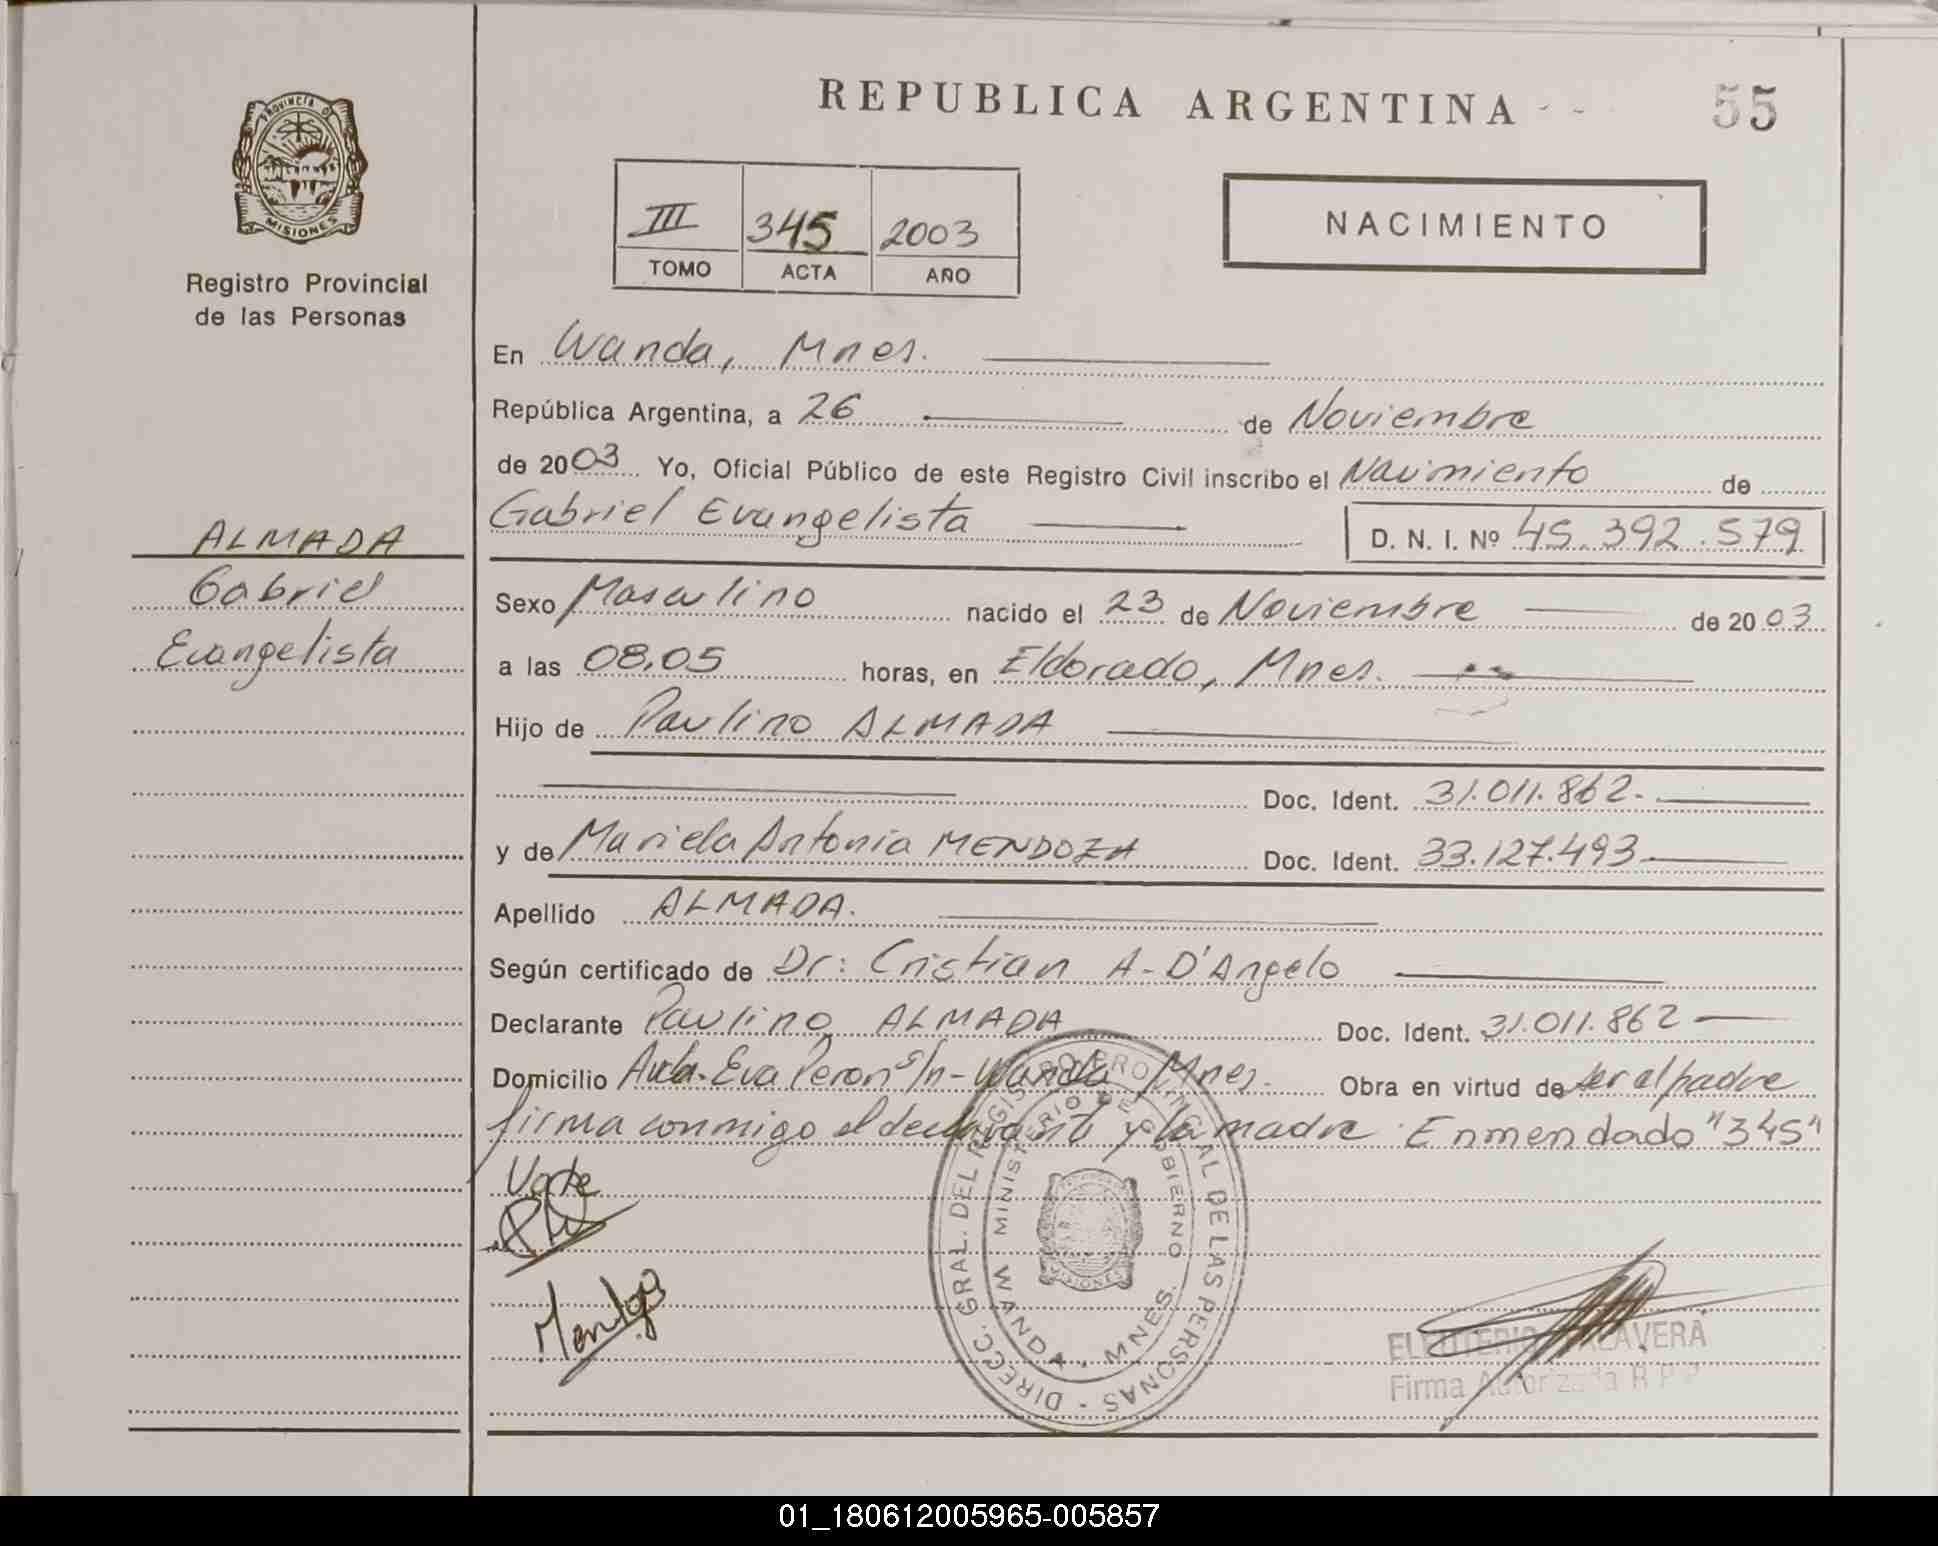 REPUBLICA ARGENTINA
55
PROVINCIA DE
MISIONES
Registro Provincial
de las Personas
III 345 2003
TOMO ACTA AÑO
NACIMIENTO
En Wanda, Mnes.
República Argentina, a 26 de Noviembre
de 2003 Yo, Oficial Público de este Registro Civil inscribo el Nacimiento de
Gabriel Evangelista D. N. I. Nº 45.392.579
ALMADA
Gabriel
Evangelista
Sexo Masculino nacido el 23 de Noviembre de 2003
a las 08,05 horas, en Eldorado, Mnes.
Hijo de Paulino ALMADA
Doc. Ident. 31.011.862.
y de Mariela Antonia MENDOZA Doc. Ident. 33.127.493
Apellido ALMADA.
Según certificado de Dr: Cristian A. D'Angelo
Declarante Paulino ALMADA Doc. Ident. 31.011.862
Domicilio Avda. Eva Peron s/n - Wanda Mnes. Obra en virtud de ser el padre
firma conmigo el declarante y la madre. Enmendado "345"
Vale
DIRECC. GRAL. DEL REGISTRO PROVINCIAL DE LAS PERSONAS
MINISTERIO DE GOBIERNO
WANDA - MNES.
MISIONES
ELEUTERIO TALAVERA
Firma Autorizada R P P
01_180612005965-005857